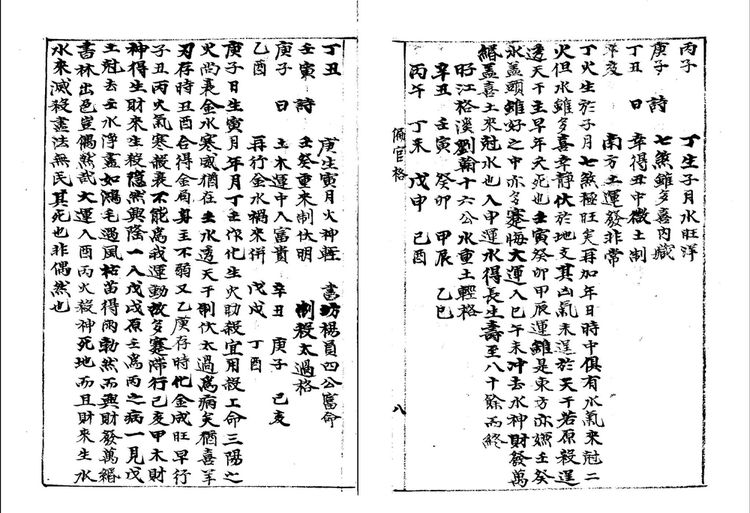 丙子 丁生子月水旺洋
庚子 詩 七煞雖多喜內藏
丁丑 日 幸得丑中微土制
辛亥 南方土運發非常
丁火生於子月七煞極旺矣再加年日時中俱有水氣來尅二
火但水雖多喜幸靜伏於地支其凶氣未逞於天干若原殺逞
透天干主早年夭死也壬寅癸卯甲辰運雖是東方亦嫌壬癸
水蓋頭雖好之中亦多蹇悔大運入巳午未冲去水神財發萬
緡蓋喜土來尅水也入申運水得長生壽至八十餘而終
旴江格溪劉翰十六公水重土輕格
辛丑 壬寅 癸卯 甲辰 乙巳
丙午 丁未 戊申 己酉
偏官格 八
丁丑 庚生寅月火神輕 書坊楊員四公富命
壬寅 詩 壬癸重來制伏明 制殺太過格
庚子 日 土木運中入富貴 辛丑 庚子 己亥
乙酉 再行金水禍來併 戊戌 丁酉
庚子日生寅月年月丁壬作化生火助殺宜用殺工命三陽之
火尚衰金水寒或猶在壬水透天干制伏太過為病矣猶喜羊
刃存時丑酉合得金局身主不弱又乙庚存時化金成旺早行
子丑丙火氣寒殺衰不能為我運動故多蹇滯行己亥甲木財
神得生財來生殺隱然興隆一入戊戌原壬為丙之病一見戊
土尅去壬水淨盡如鴻毛遇風枯苗得雨勃然而興財發萬緡
書林出色豈偶然哉大運入酉丙火殺神死地而且財來生水
水來滅殺盡法無民其死也非偶然也